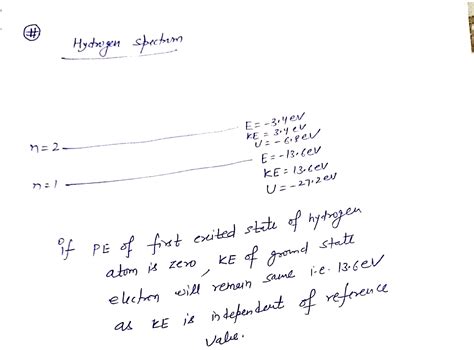 #
Hydrogen spectrum
n=2
E = -3.4 eV
KE = 3.4 eV
U = -6.8 eV
n=1
E = -13.6 eV
KE = 13.6 eV
U = -27.2 eV
if PE of first exited state of hydrogen
atom is zero, KE of ground state
electron will remain same i.e. 13.6 eV
as KE is independent of reference
value.